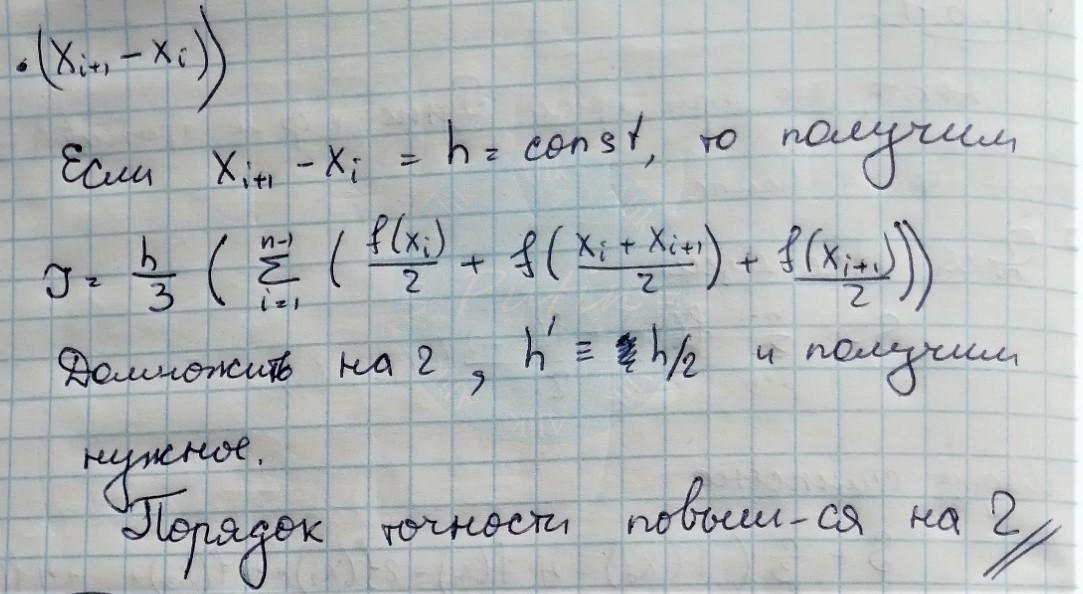 · (x_{i+1} - x_i))
Если x_{i+1} - x_i = h = const, то получим
J = \frac{h}{3} ( \sum_{i=1}^{n-1} ( \frac{f(x_i)}{2} + f(\frac{x_i + x_{i+1}}{2}) + \frac{f(x_{i+1})}{2} ))
Домножить на 2, h' ≡ h/2 и получим
нужное.
Порядок точности повыш-ся на 2